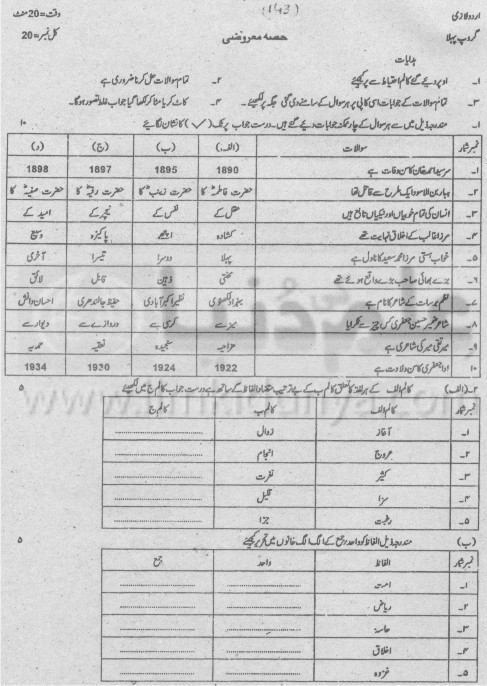 (143)
اردو لازمی
وقت=20 منٹ
گروپ پہلا
حصہ معروضی
کل نمبر=20
ہدایات
۱۔ اوپر دیئے گئے کالم احتیاط سے پُر کیجئے ۲۔ تمام سوالات حل کرنا ضروری ہے
۳۔ تمام سوالات کے جوابات اسی کاپی پر ہر سوال کے سامنے دی گئی جگہ پر لکھیئے۔ ۴۔ کاٹ کر یا مٹا کر لکھا گیا جواب غلط تصور ہوگا۔
۱۔ مندرجہ ذیل میں سے ہر سوال کے چار ممکنہ جوابات دیئے گئے ہیں۔ درست جواب پر ٹک (✓) کا نشان لگائیے ۱۰
نمبر شمار سوالات (الف) (ب) (ج) (د)
۱۔ سرسید احمد خان کا سن وفات ہے 1890 1895 1897 1898
۲۔ ہبار بن الاسود ایک طرح سے قاتل تھا حضرت فاطمہؓ کا حضرت زینبؓ کا حضرت رقیہؓ کا حضرت صفیہؓ کا
۳۔ انسان کی تمام خوبیاں اور نیکیاں تابع ہیں عقل کے نفس کے نیچر کے امید کے
۴۔ مرزا غالب کے اخلاق نہایت تھے کشادہ اچھے پاکیزہ وسیع
۵۔ خواب ہستی مرزا محمد سعید کا ناول ہے پہلا دوسرا تیسرا آخری
۶۔ بڑے بھائی صاحب بڑے واقع ہوئے تھے محنتی ذہین قابل لائق
۷۔ نظم برسات کے شاعر کا نام ہے بہزاد لکھنوی نظیر اکبر آبادی حفیظ جالندھری احسان دانش
۸۔ شاعر ضمیر حسین جعفری کس چیز سے ٹکرایا میز سے کرسی سے دروازے سے دیوار سے
۹۔ میر تقی میر کی شاعری ہے مزاحیہ سنجیدہ نعتیہ حمدیہ
۱۰۔ ادا جعفری کا سن ولادت ہے 1922 1924 1930 1934
۲۔(الف) کالم الف کے ہر لفظ کا تعلق کالم ب کے بے ترتیب متضاد الفاظ کے ساتھ ہے درست جواب کالم ج میں لکھیئے ۵
نمبر شمار کالم الف کالم ب کالم ج
۱۔ آغاز زوال
۲۔ عروج انجام
۳۔ کثیر نفرت
۴۔ سزا قلیل
۵۔ رغبت جزا
(ب) مندرجہ ذیل الفاظ کو واحد، جمع کے الگ الگ خانوں میں تحریر کیجئے ۵
نمبر شمار الفاظ واحد جمع
۱۔ امت
۲۔ ریاض
۳۔ حاسہ
۴۔ اخلاق
۵۔ غزوہ